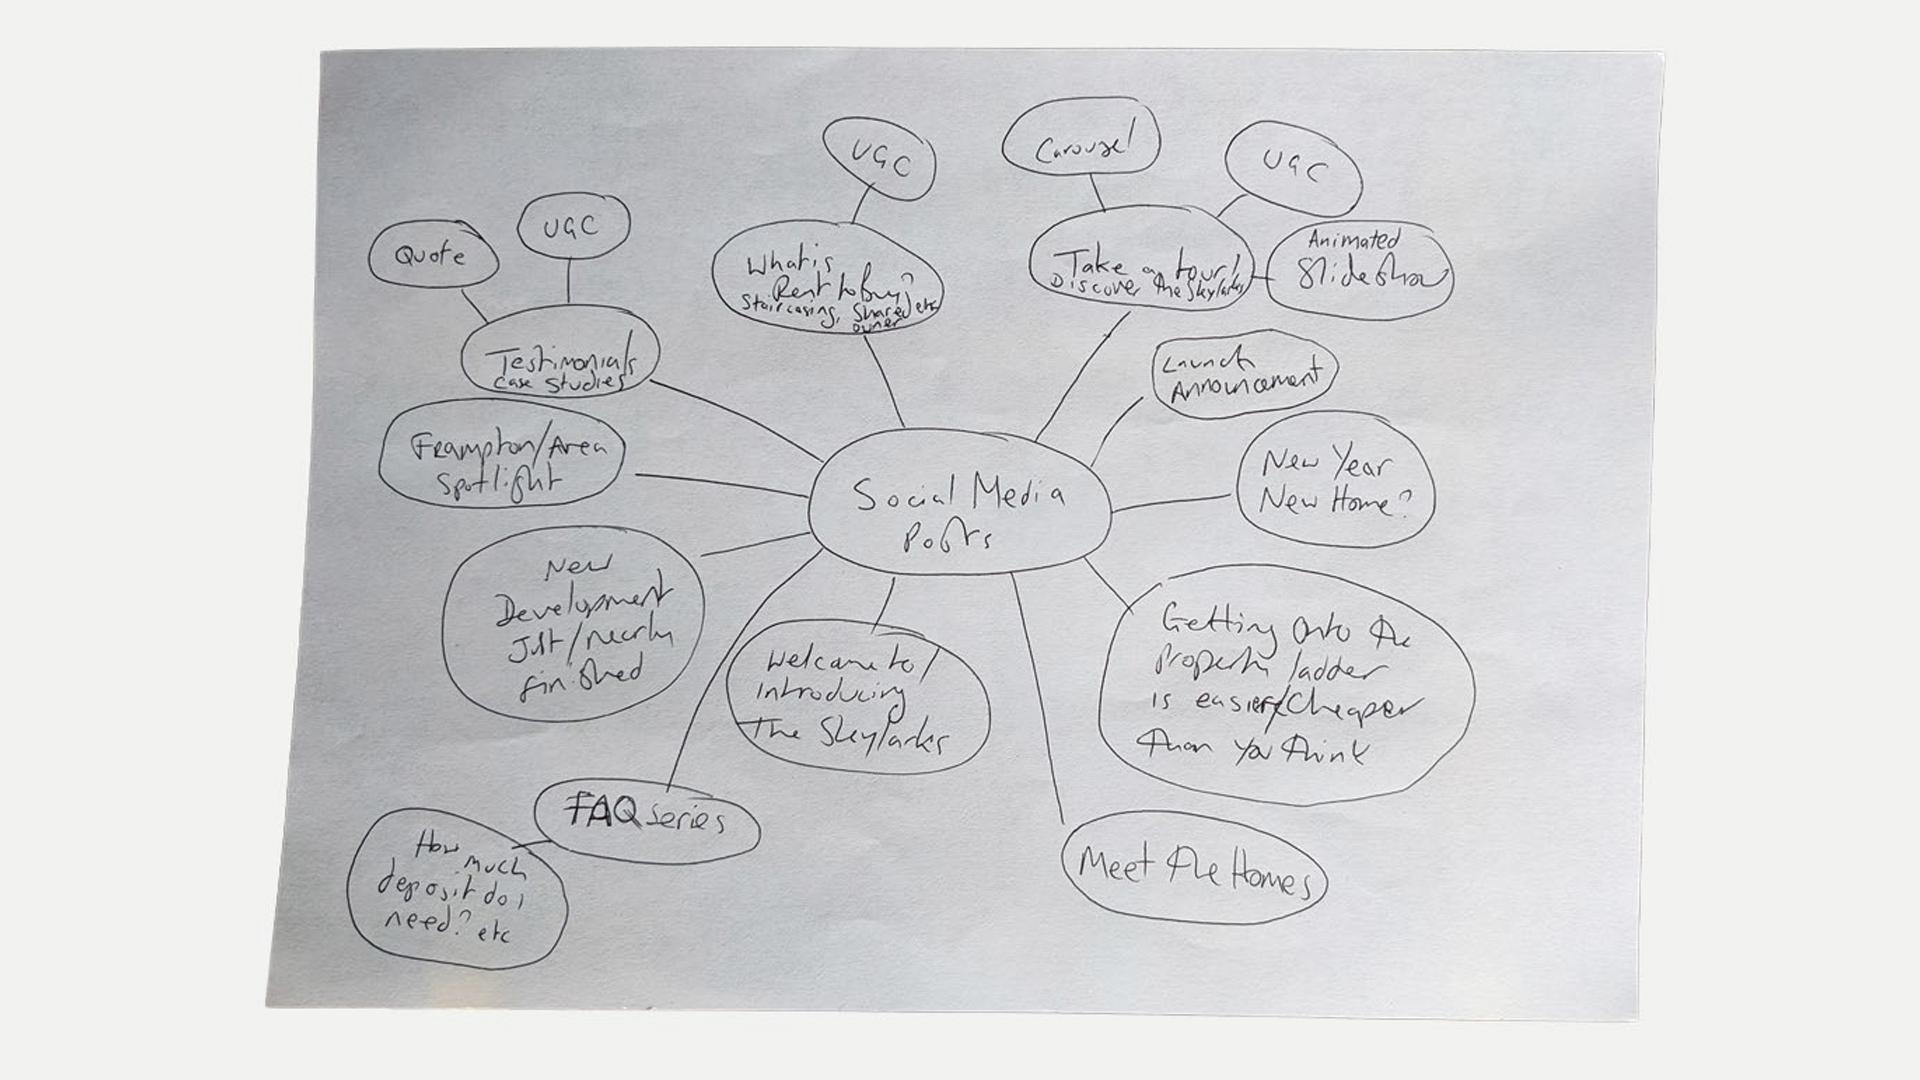 Carousel
UGC
UGC
Quote
UGC
Animated
Slideshow
What is
Rent to Buy?
Staircasing, Shared etc
owner
Take a tour!
Discover the Skylarks
Testimonials
Case Studies
Launch
Announcement
Frampton/Area
Spotlight
New Year
New Home?
Social Media
Posts
New
Development
Just/nearly
finished
Welcome to/
introducing
The Skylarks
Getting onto the
property ladder
is easier/Cheaper
than you think
FAQ series
How much
deposit do i
need? etc
Meet the Homes